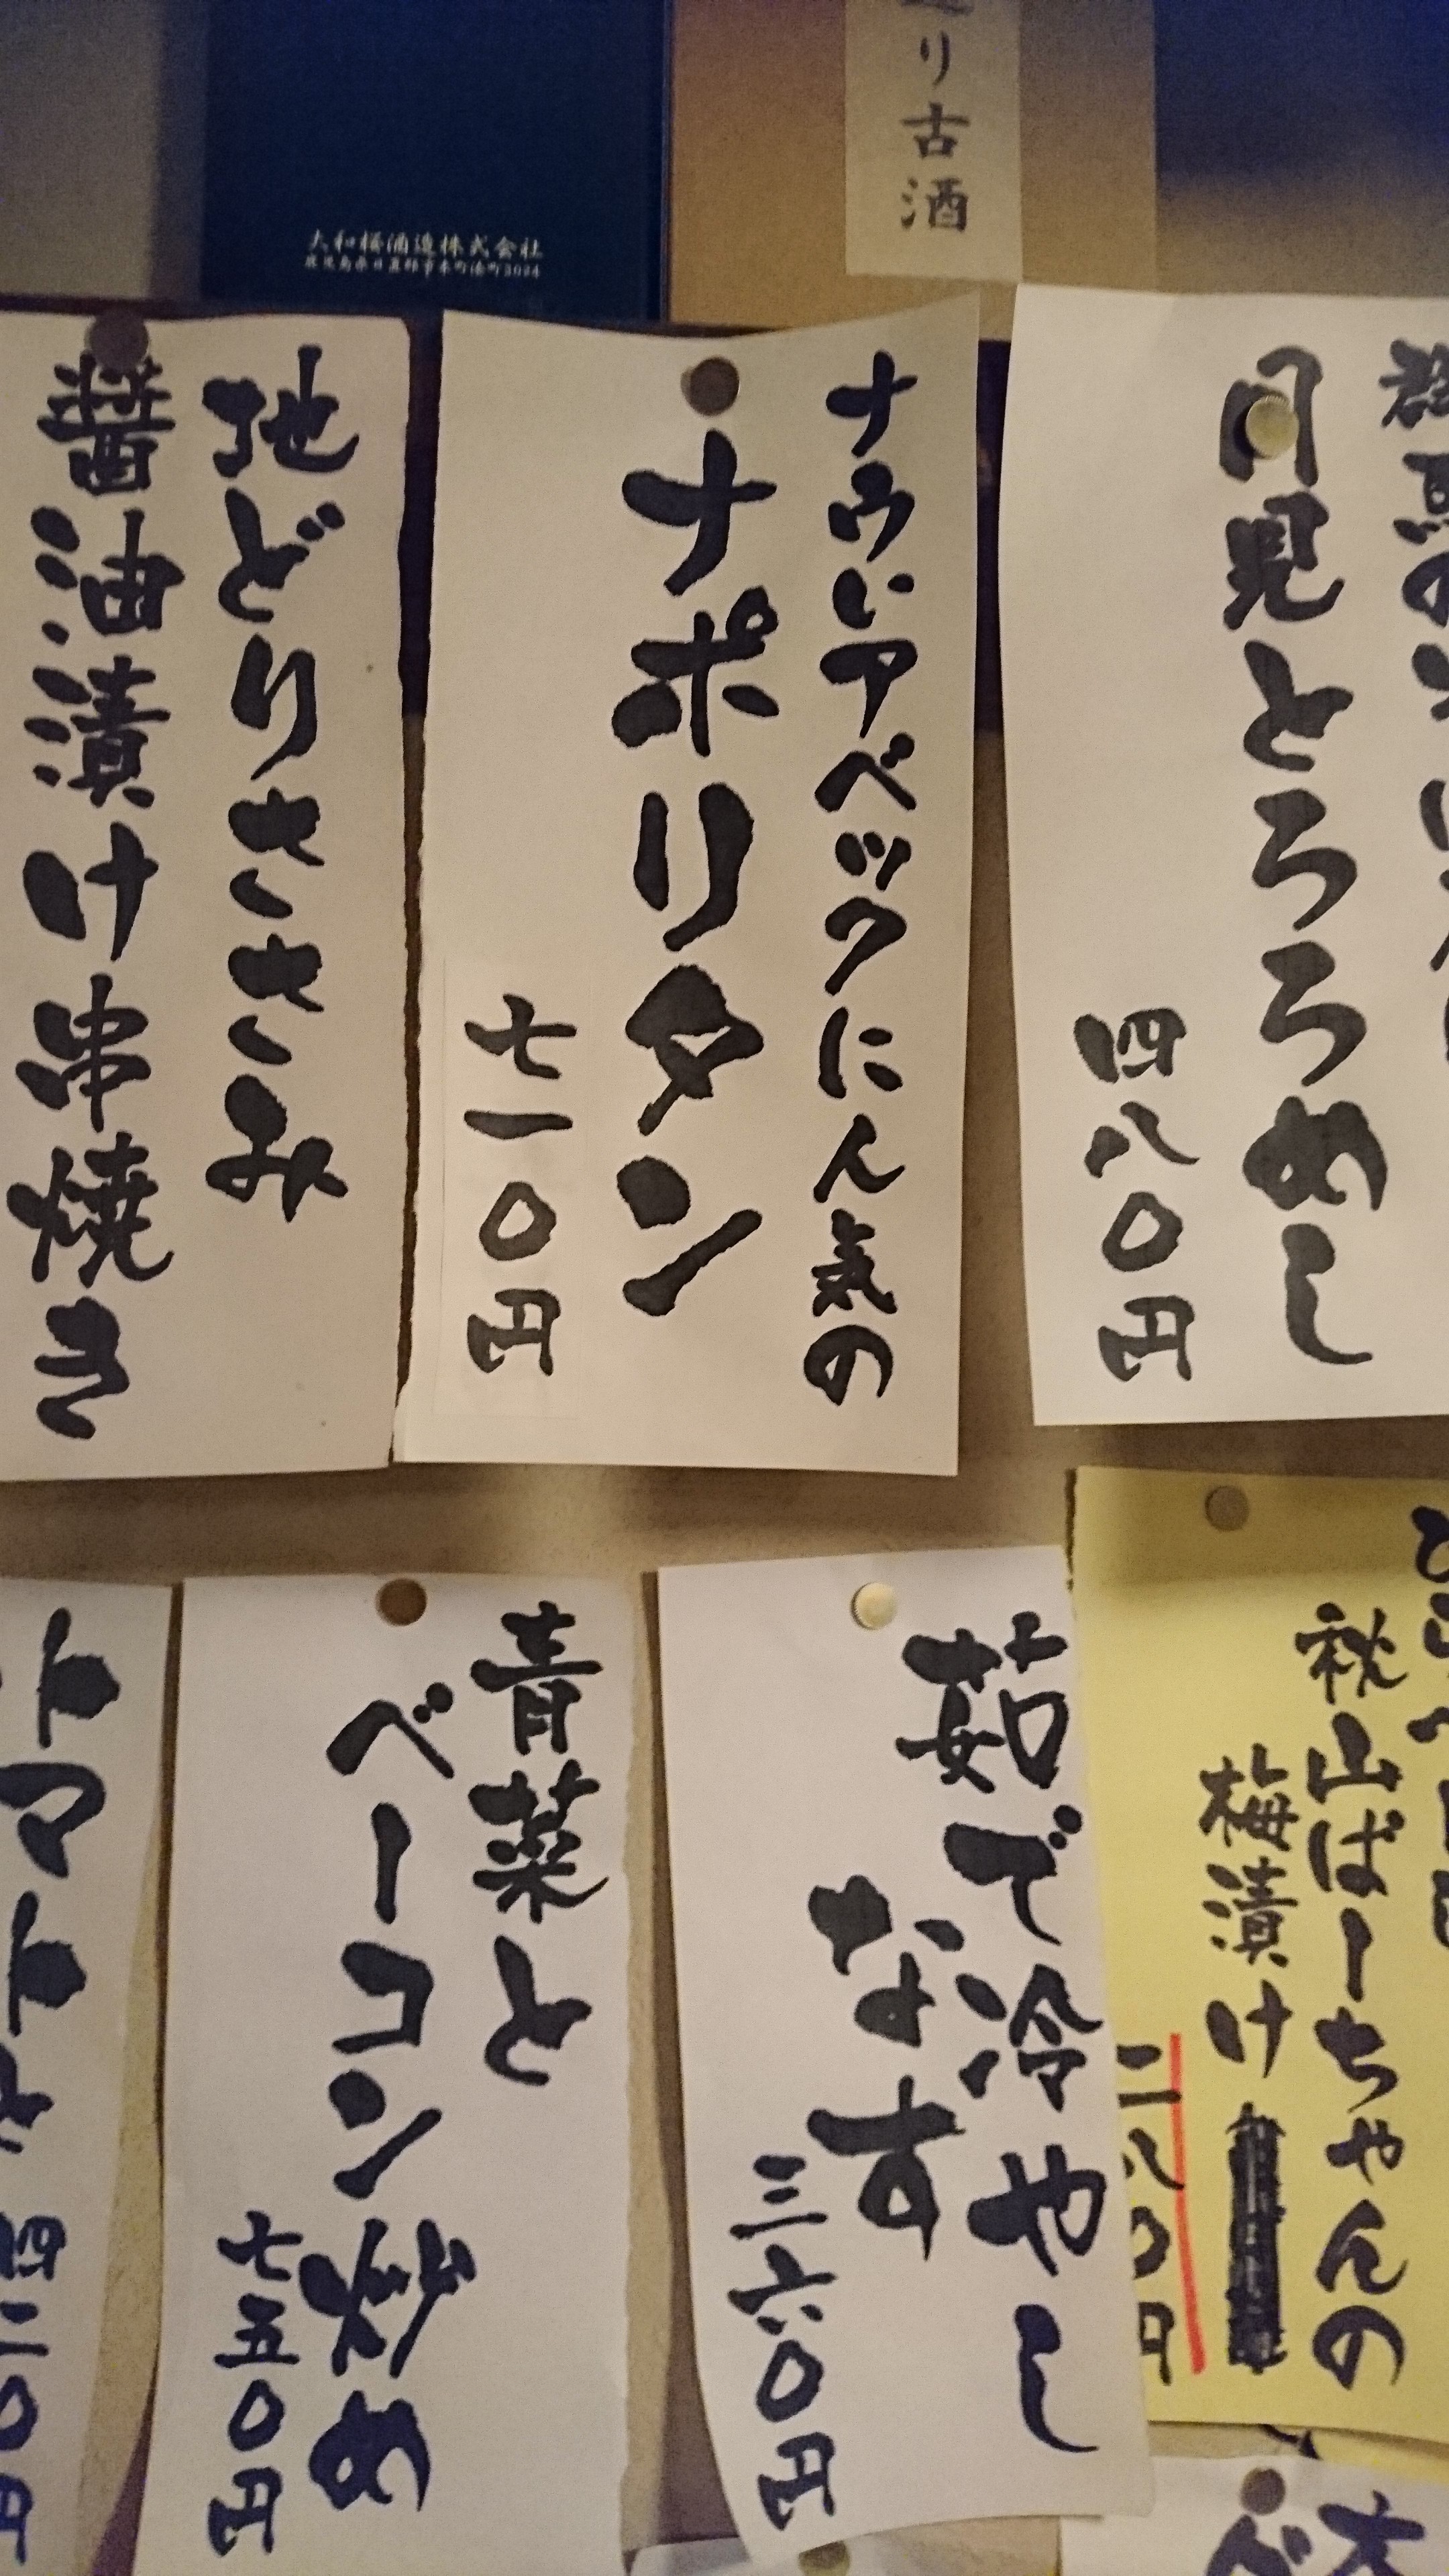 り古酒
大和桜酒造株式会社
鹿児島県日置郡市来町湊町3024
月見とろろめし
四八〇円
ナウいアベックにん気の
ナポリタン
七一〇円
地どりささみ
醤油漬け串焼き
秋山ばーちゃんの
梅漬け
二八〇円
茹で冷やし
なす
三六〇円
青菜と
ベーコン炒め
七五〇円
トマト
四二〇円